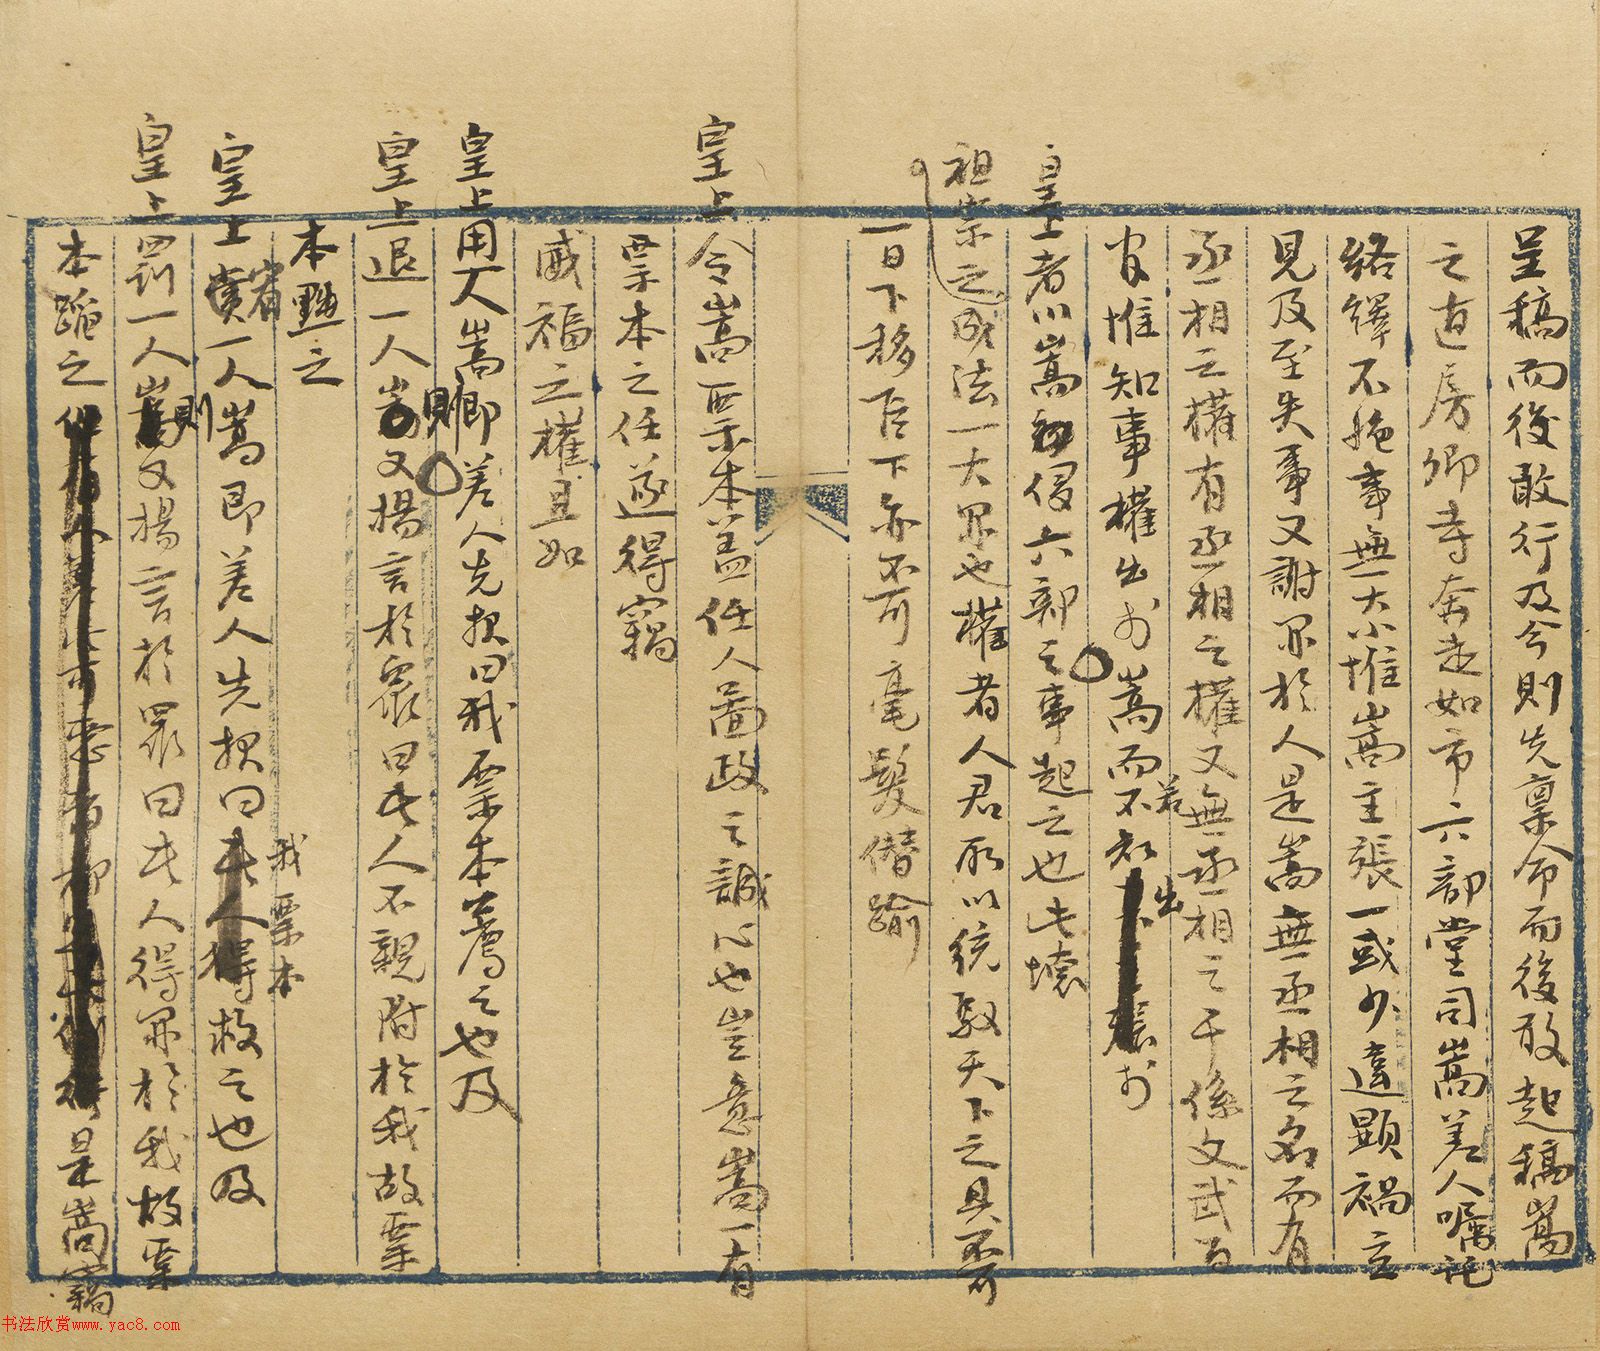 呈稿而後敢行及今則先稟命而後敢起稿嵩
之直房卿寺奔走如市六部堂司嵩差人囑託
絡繹不絕事無大小惟嵩主張一或少違顯禍立
見及至失事又謝罪於人是嵩無丞相之名而有
丞相之權有丞相之權又無丞相之干係文武百
官惟知事權出於嵩而不知出於
皇上者以嵩侵六部之事起之也此壞
祖宗之成法一大罪也權者人君所以統馭天下之具不可
一日下移臣下亦不可毫髮僭踰
皇上令嵩票本蓋任人圖政之誠心也豈意嵩一有
票本之任遂得竊
威福之權且如
皇上用人嵩即差人先報曰我票本薦之也及
皇上退一人嵩又揚言於眾曰此人不親附於我故票
本黜之
皇上宥一人嵩即差人先報曰我票本救之也及
皇上罰一人嵩則又揚言於眾曰此人得罪於我故票
本 之 是嵩竊
书法欣赏www.yac8.com